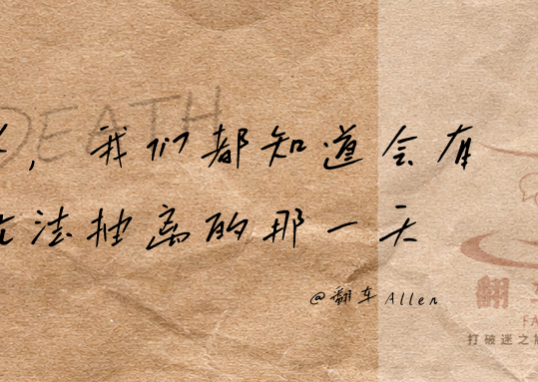 DEATH
，我们都知道会有
法抽离的那一天
@翻车Allen
翻
FA
打破迷之尴